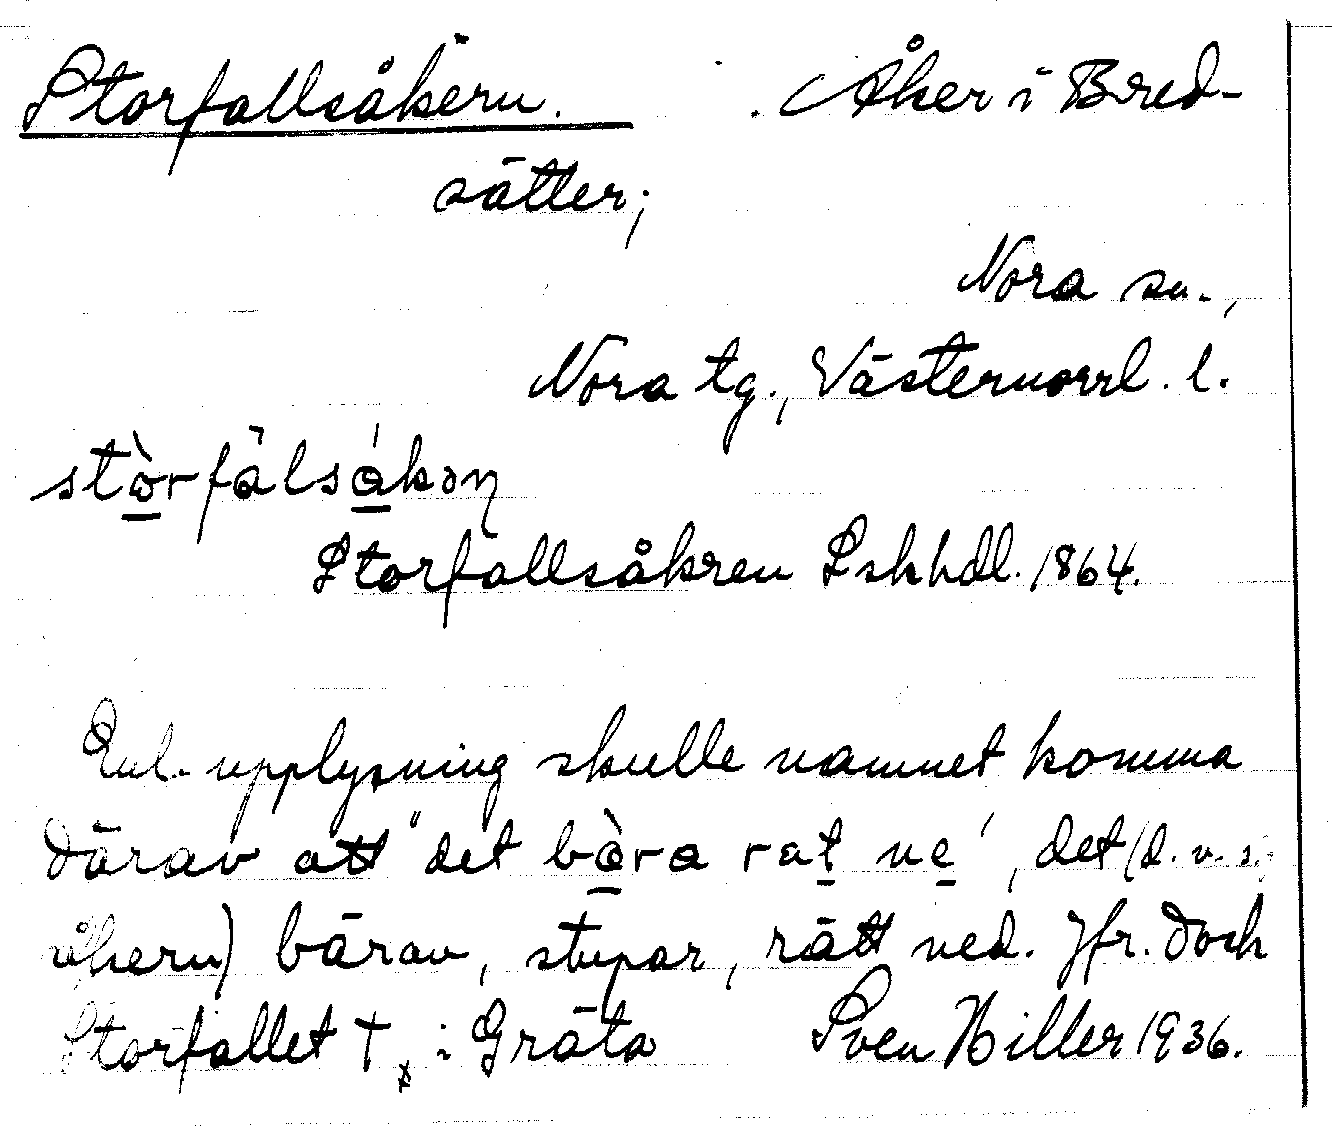 Storfallsåkern. Åker i Bred-
sätter;
Nora sn.,
Nora tg., Västernorrl. l.
stòrfālsákəɳ
Storfallsåkren Lskhdl. 1864.
Enl. upplysning skulle namnet komma
därav att "det bàra rat ne", det (d.v.s.
åkern) bärav, stupar, rätt ned. Jfr. dock
Storfallet † i Gräta Sven Hiller 1936.